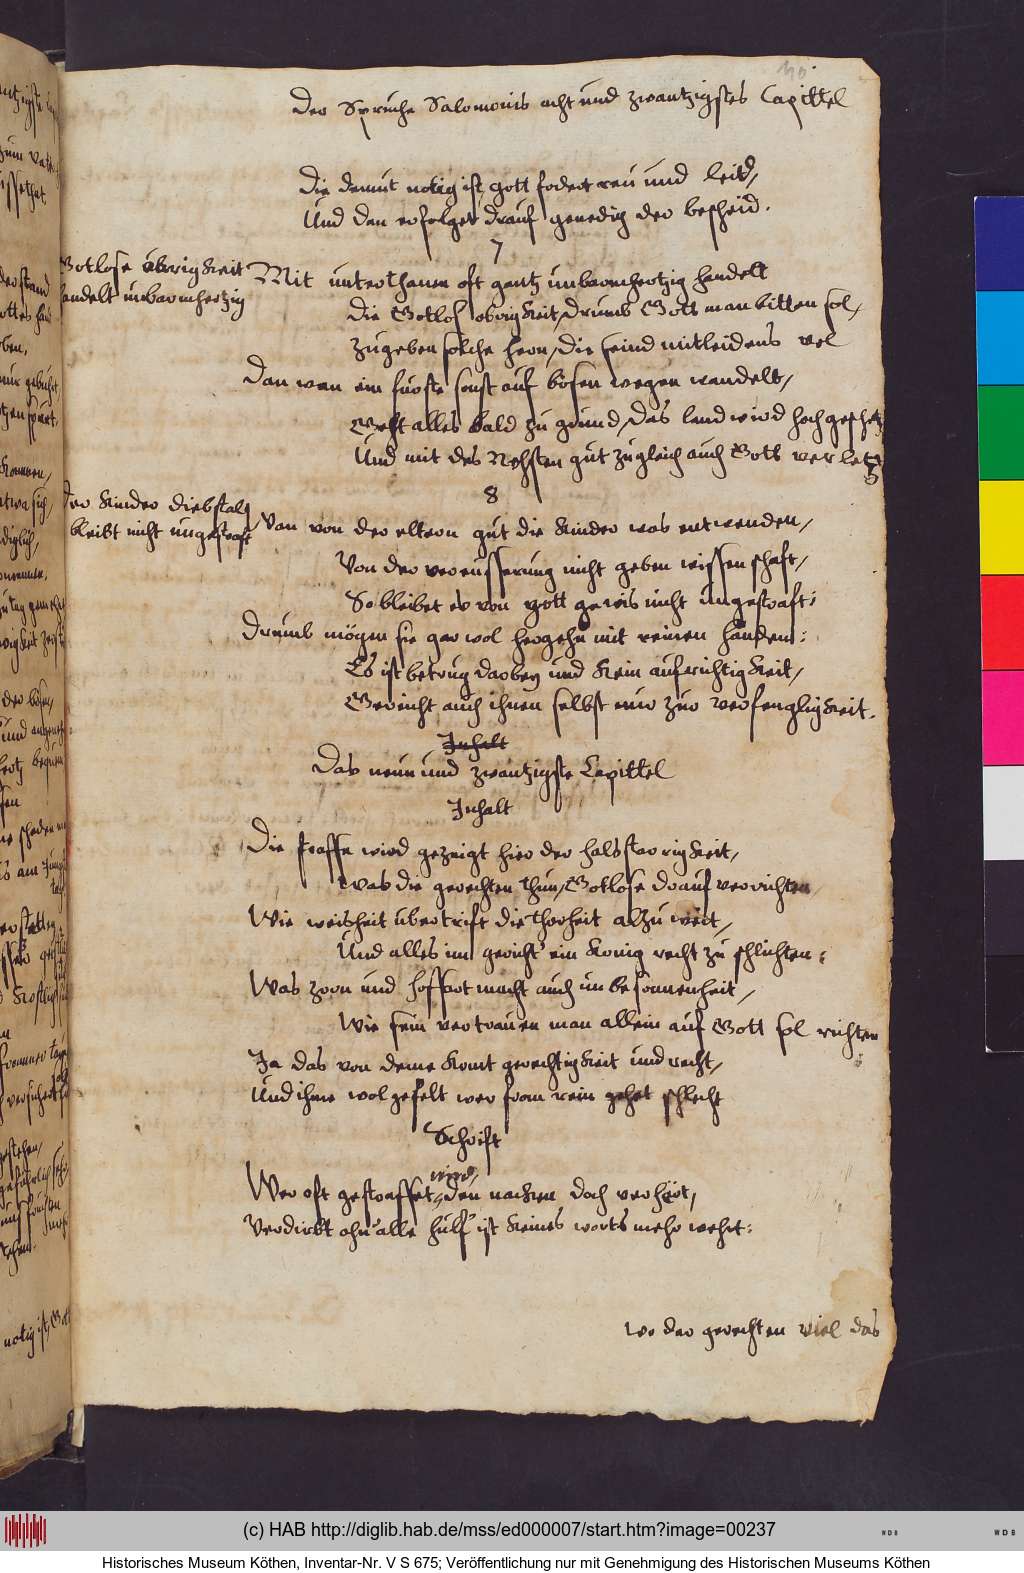 Der Spruche Salomonis acht und zwantzigstes Capittel
Die demut notig ist, gott fodert reu und leid,
Und dan erfolget drauf genedig der bescheid.
7
Gotlose obrigkeit
handelt unbarmhertzig
Mit unterthanen oft gantz unbarmhertzig handelt
Die Gotlos obrigkeit, drumb Gott man bitten sol,
zugeben solche hern, die seind mitleidens vol
Dan wan ein furste sonst auf bösen wegen wandelt,
Geht alles bald zu grund, das land wird hoch geschetzt
Und mit des Nehsten gut zugleich auch Gott verletzt
8
Der kinder diebstalh
bleibt nicht ungestraft
Van von der eltern gut die kinder was entwenden,
Von der vereusserung nicht geben wissenschaft,
So bleibet es von gott gewis nicht ungestraft:
Drumb mögen sie gar wol hergehn mit reinen händen:
Es ist betrug darbey und kein aufrichtigkeit,
Gereicht auch ihnen selbst nur zur verfengligkeit.
Inhalt
Das neun und zwantzigste Capittel
Inhalt
Die straffe wird gezeigt hier der halsstarrigkeit,
Was die gerechten thun, Gotlose drauf verrichten,
Wie weisheit ubertrift die thorheit alzu weit,
Und alles im gericht ein konig recht zu schlichten:
Was zorn und hoffart macht auch unbesonnenheit,
Wie sein vertrauen man allein auf Gott sol richten
Ja das von deme komt gerechtigkeit und recht,
Und ihme wolgefelt wer from rein gehet schlecht
Schrift
Wer oft gestraffet wird, den nacken doch verhärt,
Verdirbt ohn alle hülf ist keines worts mehr wehrt:
wo der gerechten viel das
(c) HAB http://diglib.hab.de/mss/ed000007/start.htm?image=00237
WDB
WDB
Historisches Museum Köthen, Inventar-Nr. V S 675; Veröffentlichung nur mit Genehmigung des Historischen Museums Köthen